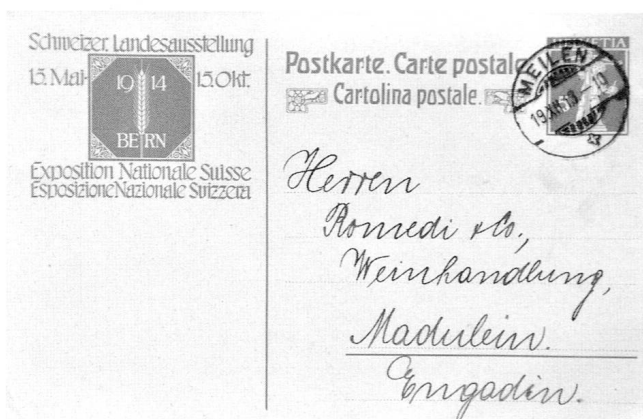 Schweizer. Landesausstellung
15. Mai - 15. Okt.
19 14
BERN
Exposition Nationale Suisse
Esposizione Nazionale Svizzera
Postkarte. Carte postale
Cartolina postale.
HELVETIA
MEILEN
Herren
Romedi & Co.,
Weinhandlung,
Madulein.
Engadin.